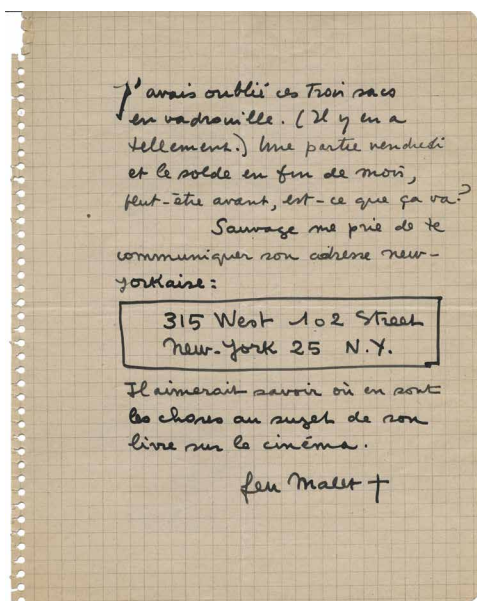 J'avais oublié ces trois sacs
en vadrouille. (Il y en a
tellement.) Une partie vendredi
et le solde en fin de mois,
peut-être avant, est-ce que ça va?
Sauvage me prie de te
communiquer son adresse new-
yorkaise:
315 West 102 Street
New-York 25 N.Y.
Il aimerait savoir où en sont
les choses au sujet de son
livre sur le cinéma.
feu Malet †